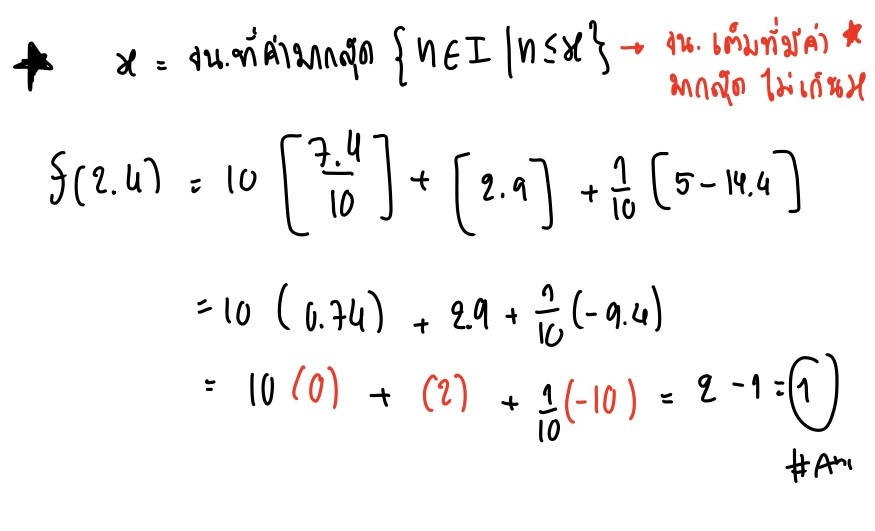 ★ x = จน.ที่ค่ามากสุด {n∈I | n≤x} → จน. เต็มที่มีค่า ★
มากสุด ไม่เกินx
f(2.4) = 10 [7.4/10] + [2.9] + 1/10 [5-14.4]
= 10 (0.74) + 2.9 + 1/10 (-9.4)
= 10 (0) + (2) + 1/10 (-10) = 2 - 1 = 1
#Ans